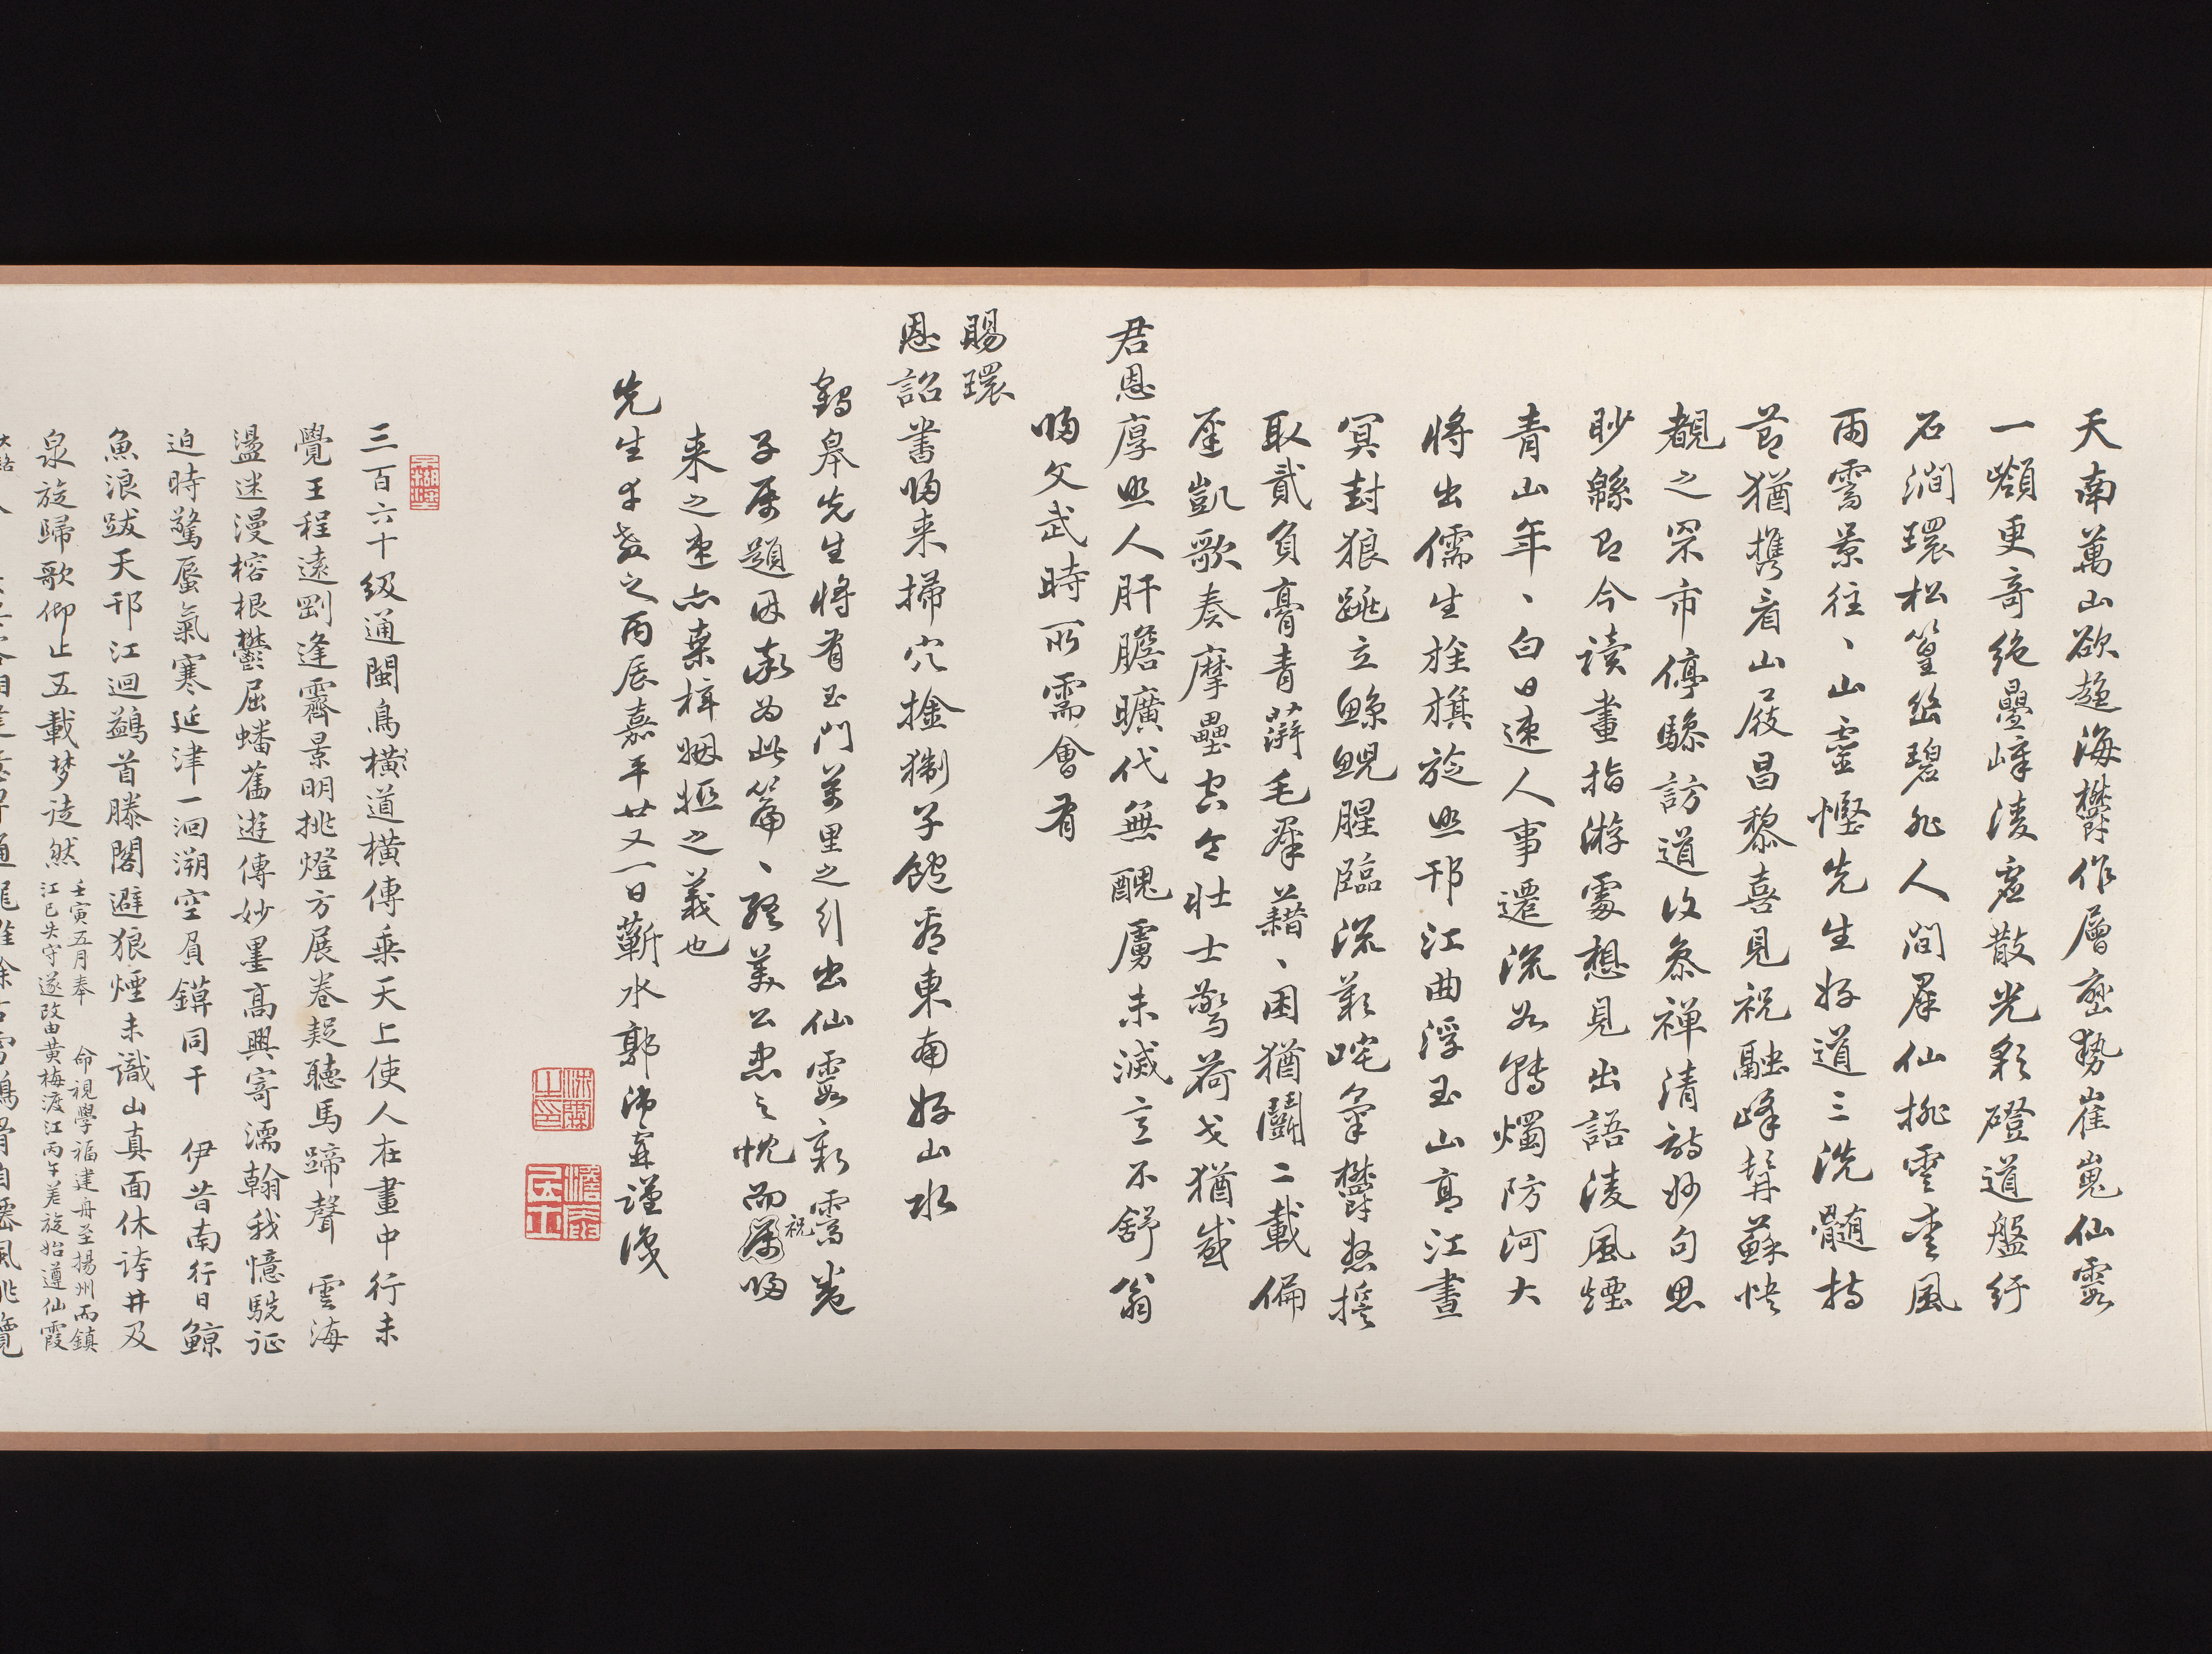 天南萬山欲趨海鬱作層巒勢崔嵬仙霞
一嶺更奇絕疊嶂淩虛散光彩磴道盤紆
石澗環松篁幽碧非人間群仙挑雲疾風
雨霽景往、山靈慳先生好道三洗髓持
節猶攜看山屐昌黎喜見祝融峰髯蘇快
覩之罘市停驂訪道復參禪清詩妙句思
眇緜即今讀畫指游處想見出語淩風煙
青山年、白日速人事遷流如轉燭防河大
將出儒生旌旗旋照邗江曲浮玉山高江晝
冥封狼跳立鯨鯢腥臨流歎咤氣鬱怒援
取貳負膏青萍毛群藉、困猶鬭二載偏
師凱歌奏摩壘空令壯士驚荷戈猶感
君恩厚照人肝膽曠代無醜虜未滅立不舒翁
歸文武時所需會有
賜環
恩詔書歸来掃穴擒猘子飽看東南好山水
鶴皋先生將有玉門萬里之行出仙霞新霽卷
子屬題因敬為此篇、終美公忠之忱而祝歸
来之速亦葉梓姻婭之義也
先生幸教之丙辰嘉平廿又一日蘄水郭沛霖謹識
三百六十級通閩鳥橫道橫傳乘天上使人在畫中行未
覺王程遠剛逢霽景明挑燈方展卷疑聽馬蹄聲 雲海
盪迷漫榕根鬱屈蟠舊遊傳妙墨高興寄濡翰我憶駪征
迫時驚蜃氣寒延津一洄溯空負鏌同干 伊昔南行日鯨
魚浪跋天邗江迴鷁首滕閣避狼煙未識山真面休誇井及
泉旋歸歌仰止五載梦徒然
壬寅五月奉 命視學福建舟至揚州而鎮
江已失守遂改由黄梅渡江丙午差旋始遵仙霞